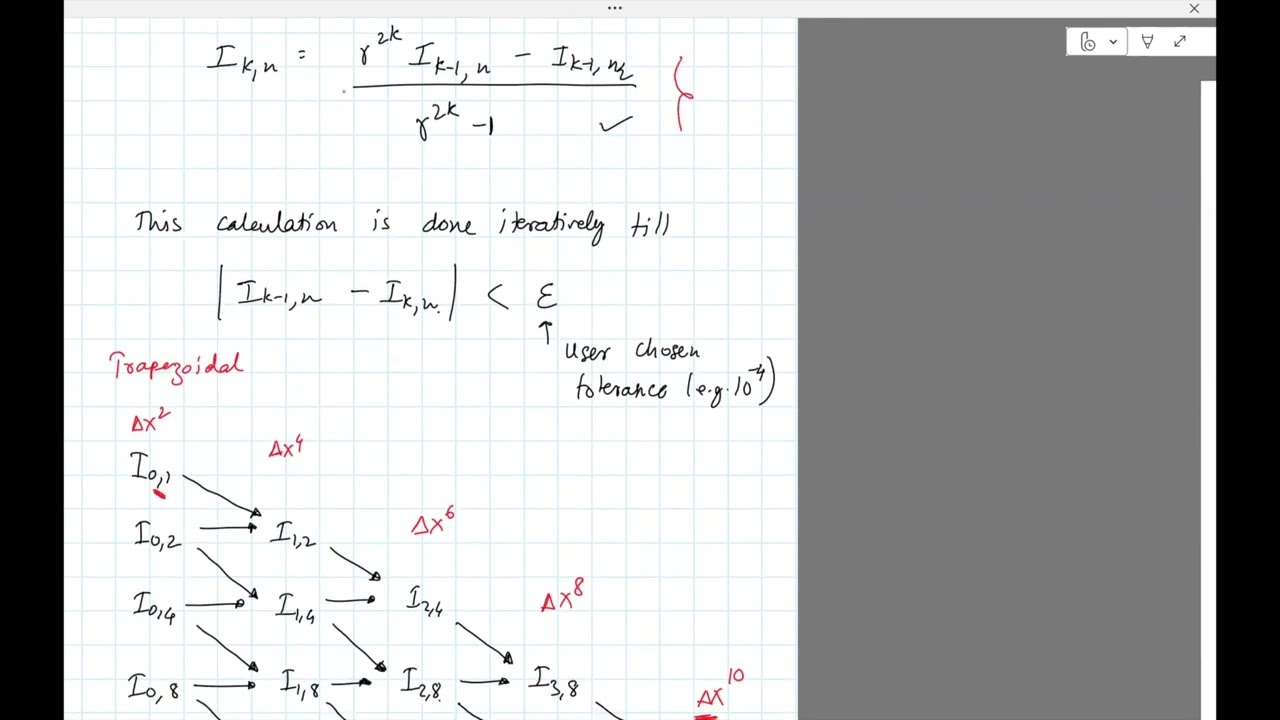 I_{k,n} = \frac{r^{2k} I_{k-1,n} - I_{k-1,n/2}}{r^{2k} - 1} ✓
This calculation is done iteratively till
|I_{k-1,n} - I_{k,n}| < ε
↑
user chosen
tolerance (e.g. 10^{-4})
Trapezoidal
Δx^2
Δx^4
I_{0,1}
Δx^6
I_{0,2} I_{1,2}
Δx^8
I_{0,4} I_{1,4} I_{2,4}
Δx^{10}
I_{0,8} I_{1,8} I_{2,8} I_{3,8}